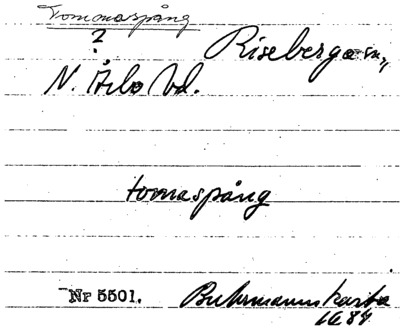 Tommaspång
? Riseberga sn,,
N. Åsbo hd.
tomaspång
Nr 5501. Buhrmanns karta
1684